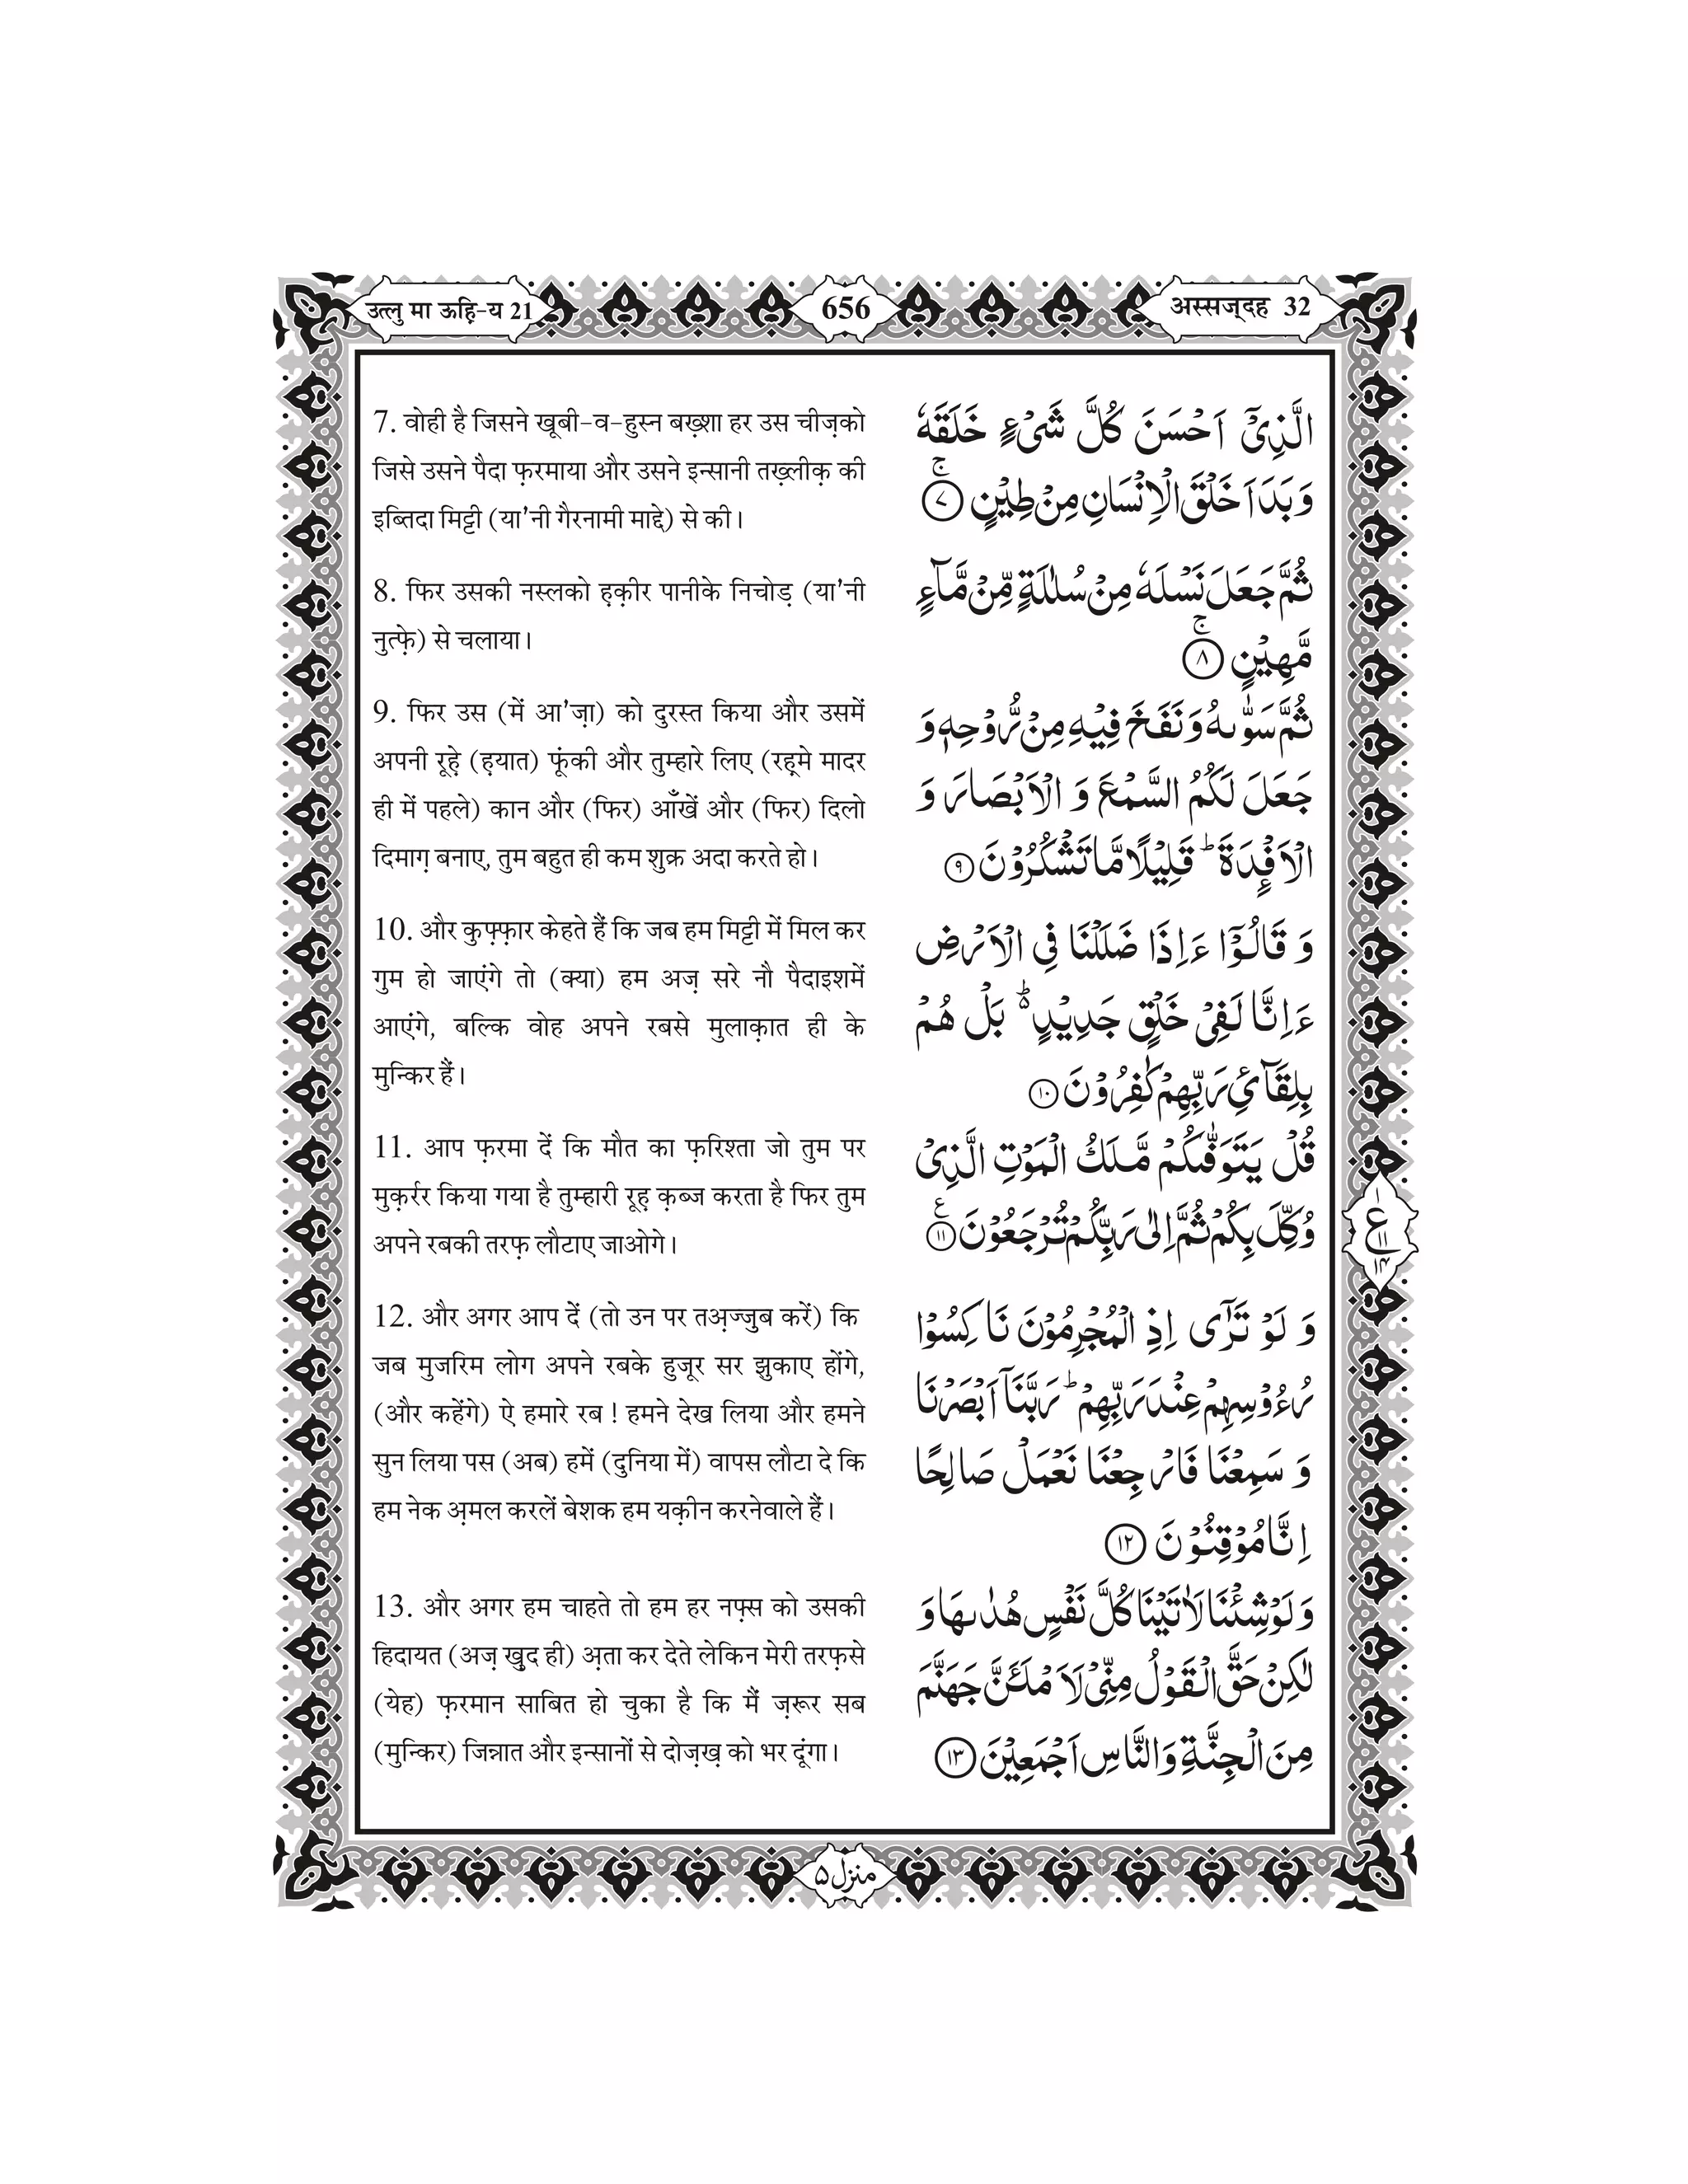 उत्लु मा ऊहि़-य 21
656
अस्सज्दह 32
7. वोही है जिसने खूबी-व-हुस्न बख़्शा हर उस चीज़को
जिसे उसने पैदा फ़रमाया और उसने इन्सानी तख़्लीक़ की
इब्तिदा मिट्टी (या'नी ग़ैरनामी माद्दे) से की।
8. फिर उसकी नस्लको ह़क़ीर पानीके निचोड़ (या'नी
नुत्फ़े) से चलाया।
9. फिर उस (में आ'ज़ा) को दुरस्त किया और उसमें
अपनी रूहे़ (ह़यात) फूंकी और तुम्हारे लिए (रह़्मे मादर
ही में पहले) कान और (फिर) आँखें और (फिर) दिलो
दिमाग़ बनाए, तुम बहुत ही कम शुक्र अदा करते हो।
10. और कुफ़्फ़ार केहते हैं कि जब हम मिट्टी में मिल कर
गुम हो जाएंगे तो (क्या) हम अज़ सरे नौ पैदाइशमें
आएंगे, बल्कि वोह अपने रबसे मुलाक़ात ही के
मुन्किर हैं।
11. आप फ़रमा दें कि मौत का फ़रिश्ता जो तुम पर
मुक़र्रर किया गया है तुम्हारी रूह़ क़ब्ज करता है फिर तुम
अपने रबकी तरफ़ लौटाए जाओगे।
12. और अगर आप दें (तो उन पर तअ़ज्जुब करें) कि
जब मुजरिम लोग अपने रबके हुजूर सर झुकाए होंगे,
(और कहेंगे) ऐ हमारे रब ! हमने देख लिया और हमने
सुन लिया पस (अब) हमें (दुनिया में) वापस लौटा दे कि
हम नेक अ़मल करलें बेशक हम यक़ीन करनेवाले हैं।
13. और अगर हम चाहते तो हम हर नफ़्स को उसकी
हिदायत (अज़ खु़द ही) अ़ता कर देते लेकिन मेरी तरफ़से
(येह) फ़रमान साबित हो चुका है कि मैं ज़रूर सब
(मुन्किर) जिन्नात और इन्सानों से दोज़ख़ को भर दूंगा।
الَّذِیْۤ اَحْسَنَ كُلَّ شَیْءٍ خَلَقَهٗ
وَ بَدَاَ خَلْقَ الْاِنْسَانِ مِنْ طِیْنٍۚ ۷
ثُمَّ جَعَلَ نَسْلَهٗ مِنْ سُلٰلَةٍ مِّنْ مَّآءٍ
مَّهِیْنٍۚ ۸
ثُمَّ سَوّٰىهُ وَ نَفَخَ فِیْهِ مِنْ رُّوْحِهٖ وَ
جَعَلَ لَكُمُ السَّمْعَ وَ الْاَبْصَارَ وَ
الْاَفْـِٕدَةَؕ قَلِیْلًا مَّا تَشْكُرُوْنَ ۹
وَ قَالُوْۤا ءَاِذَا ضَلَلْنَا فِی الْاَرْضِ
ءَاِنَّا لَفِیْ خَلْقٍ جَدِیْدٍ ۬ؕ بَلْ هُمْ
بِلِقَآئِ رَبِّهِمْ كٰفِرُوْنَ ۱۰
قُلْ یَتَوَفّٰىكُمْ مَّلَكُ الْمَوْتِ الَّذِیْ
وُكِّلَ بِكُمْ ثُمَّ اِلٰى رَبِّكُمْ تُرْجَعُوْنَ۠ ۱۱
وَ لَوْ تَرٰۤى اِذِ الْمُجْرِمُوْنَ نَاكِسُوْا
رُءُوْسِهِمْ عِنْدَ رَبِّهِمْؕ رَبَّنَاۤ اَبْصَرْنَا
وَ سَمِعْنَا فَارْجِعْنَا نَعْمَلْ صَالِحًا
اِنَّا مُوْقِنُوْنَ ۱۲
وَ لَوْ شِئْنَا لَاٰتَیْنَا كُلَّ نَفْسٍ هُدٰىهَا وَ
لٰكِنْ حَقَّ الْقَوْلُ مِنِّیْ لَاَمْلَـَٔنَّ جَهَنَّمَ
مِنَ الْجِنَّةِ وَ النَّاسِ اَجْمَعِیْنَ ۱۳
۱
ع
۱۱
۱۴
منزل ۵